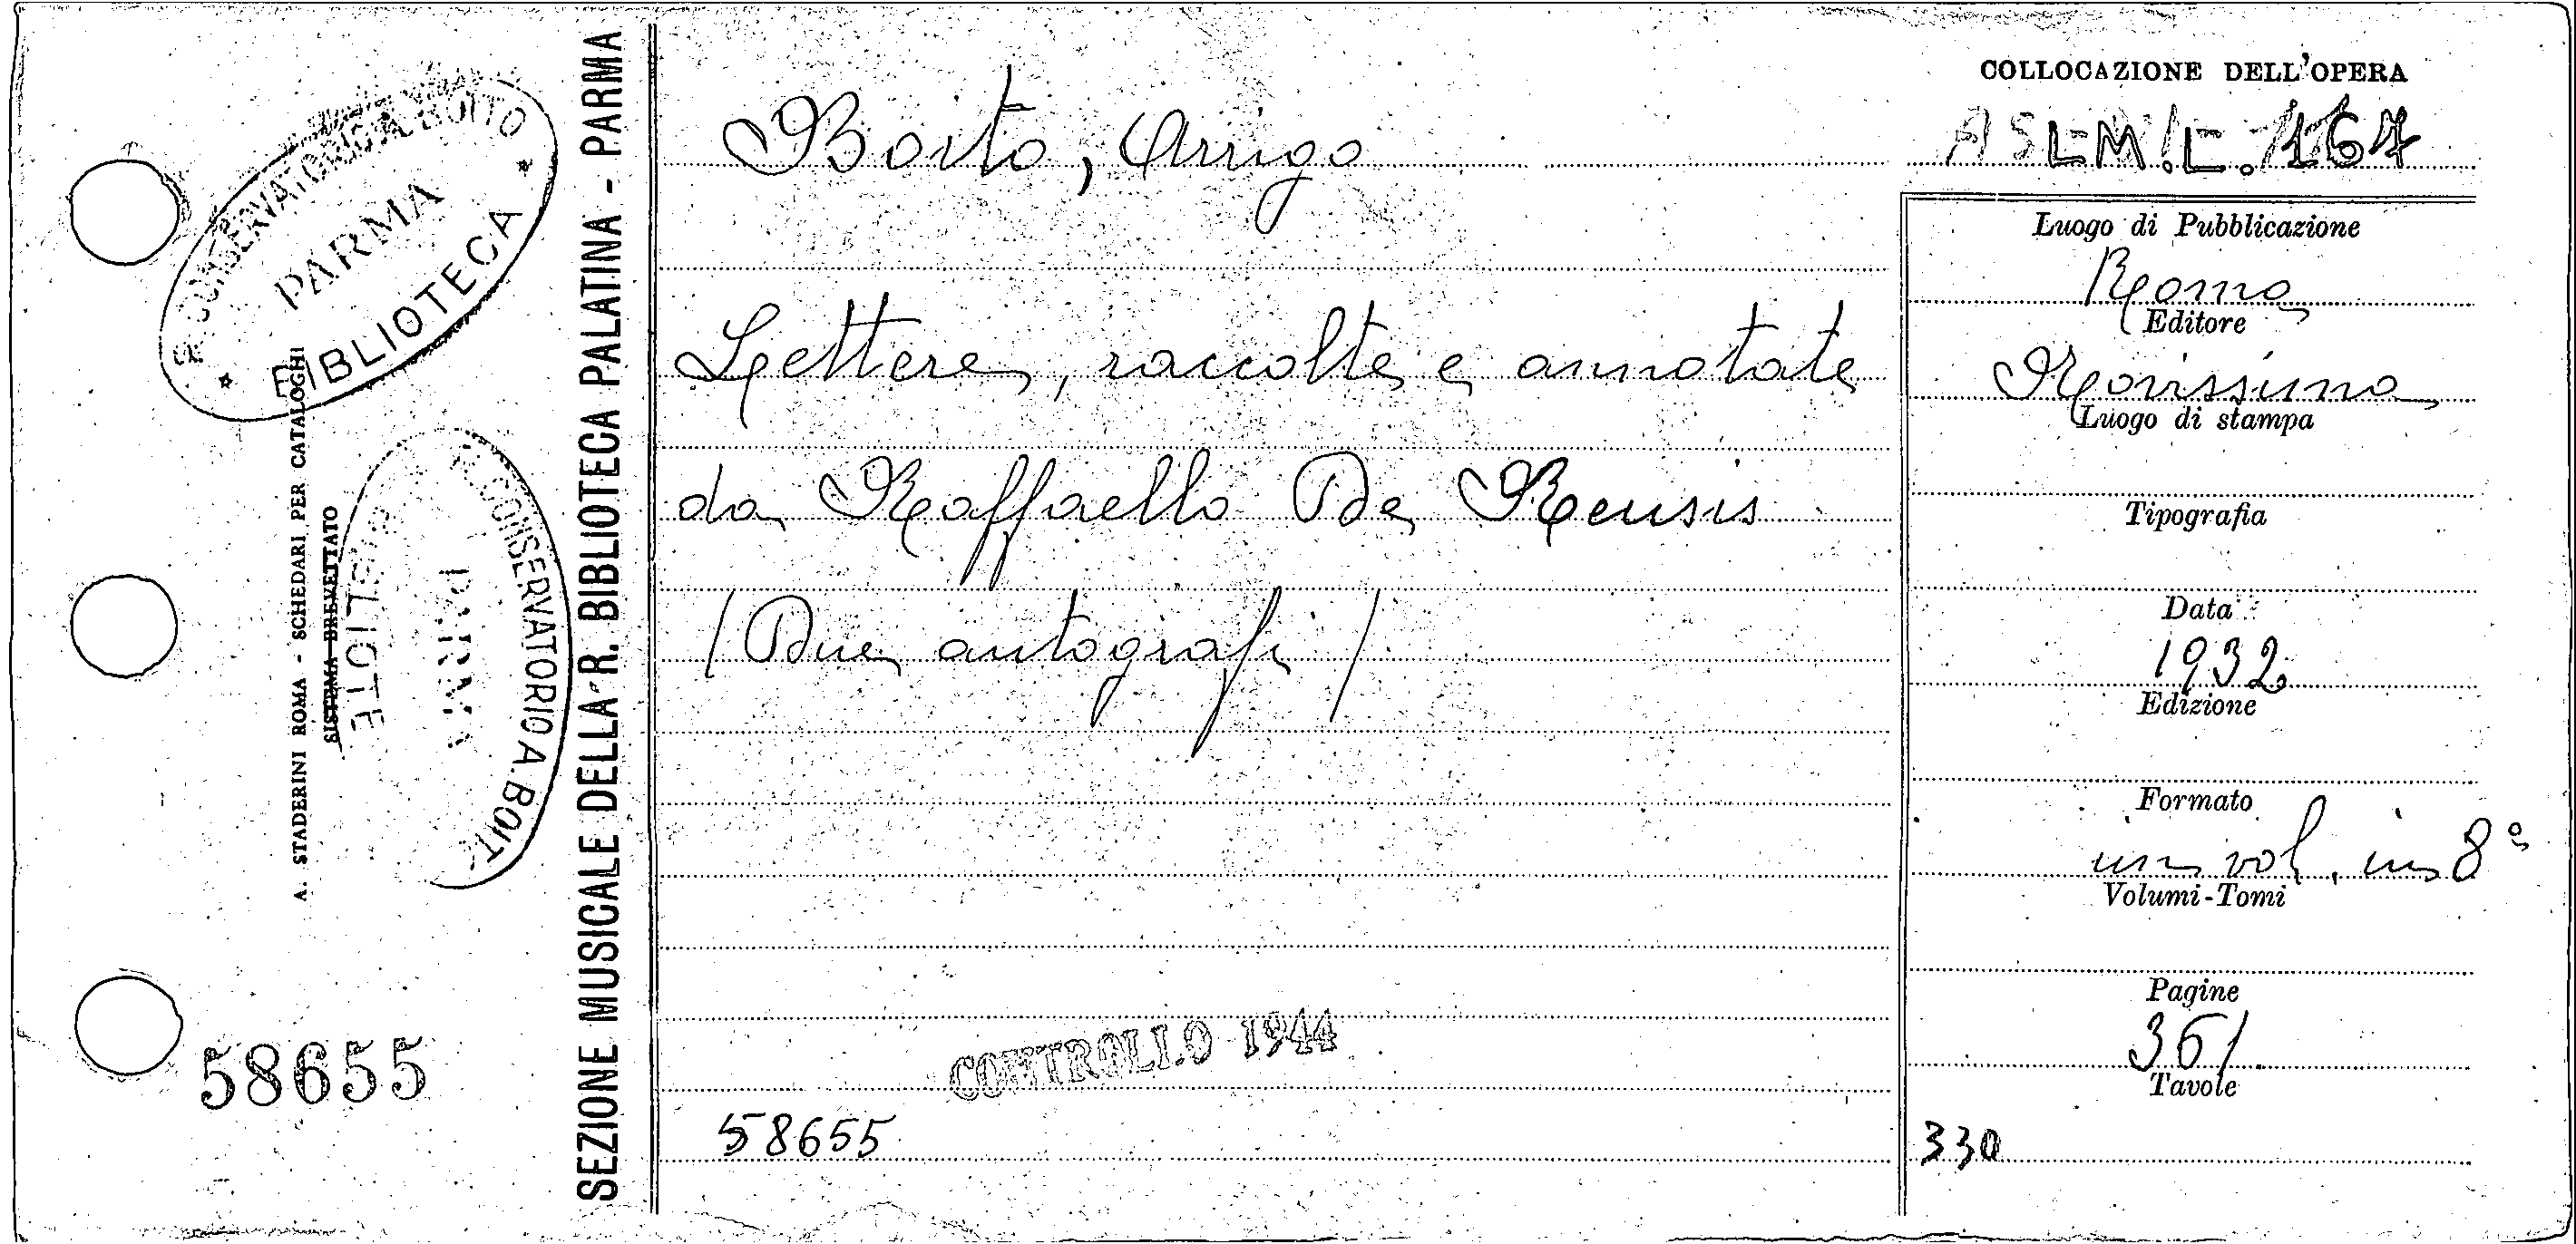 R. CONSERVATORIO A. BOITO
PARMA
BIBLIOTECA
A. STADERINI ROMA - SCHEDARI PER CATALOGHI
SISTEMA BREVETTATO
R. CONSERVATORIO A. BOIT
PARMA
BIBLIOTE
58655
SEZIONE MUSICALE DELLA R. BIBLIOTECA PALATINA - PARMA
Boito, Arrigo
Lettere, raccolte e annotate
da Raffaello De Rensis
(Due autografi)
CONTROLLO 1944
58655
COLLOCAZIONE DELL'OPERA
Luogo di Pubblicazione
Roma
Editore
Novissima
Luogo di stampa
Tipografia
Data
1932
Edizione
Formato
un vol. in 8°
Volumi-Tomi
Pagine
361.
Tavole
330